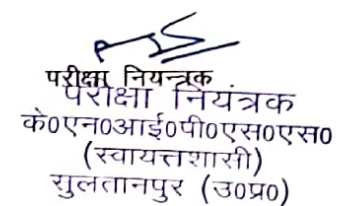 परीक्षा नियन्त्रक
परीक्षा नियंत्रक
के०एन०आई०पी०एस०एस०
(स्वायत्तशासी)
सुलतानपुर (उ०प्र०)